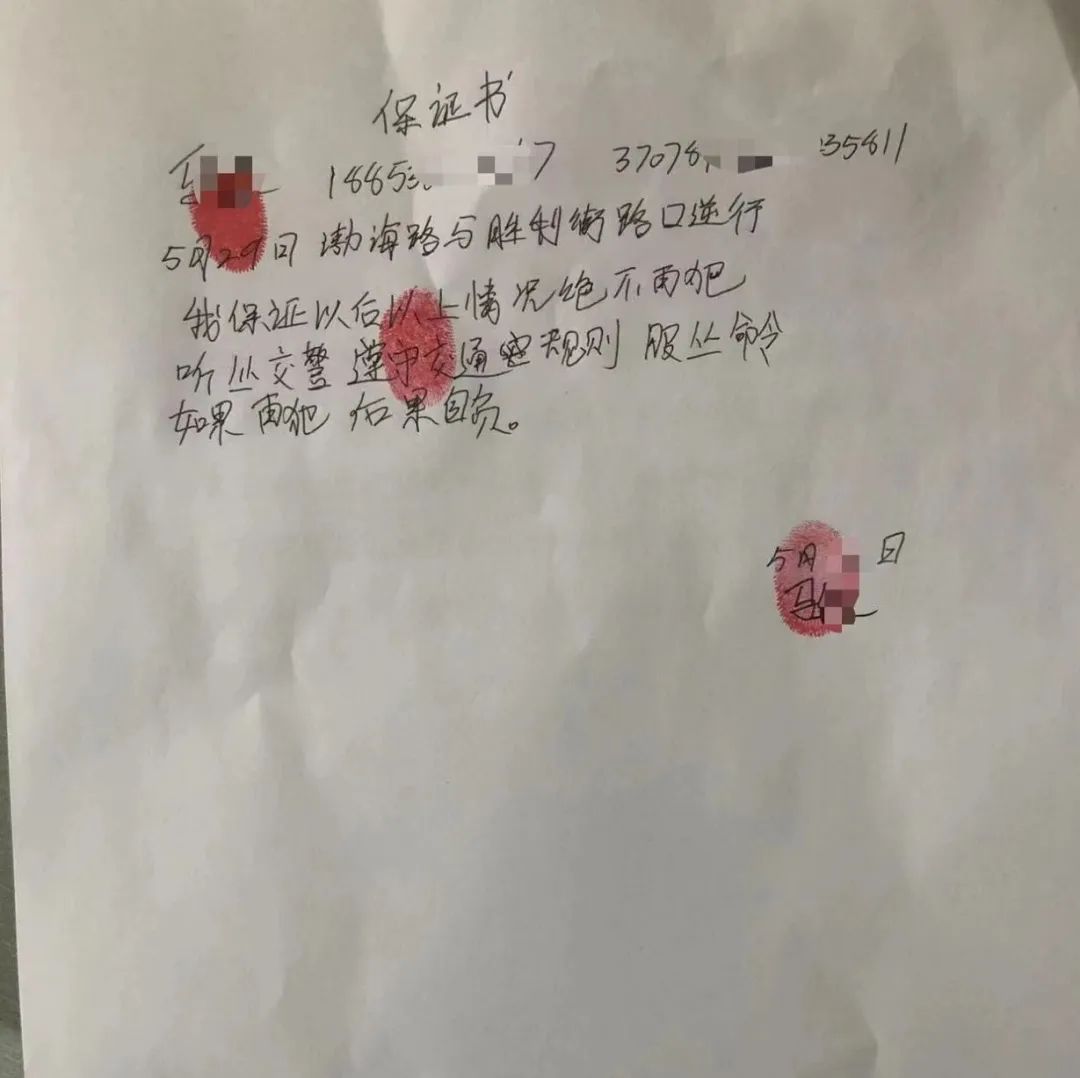 保证书
1885 7 37078 35811
5月29日 渤海路与胜利街路口逆行
我保证以后以上情况绝不再犯
听从交警 遵守交通规则 服从命令
如果再犯 后果自负。
5月 日